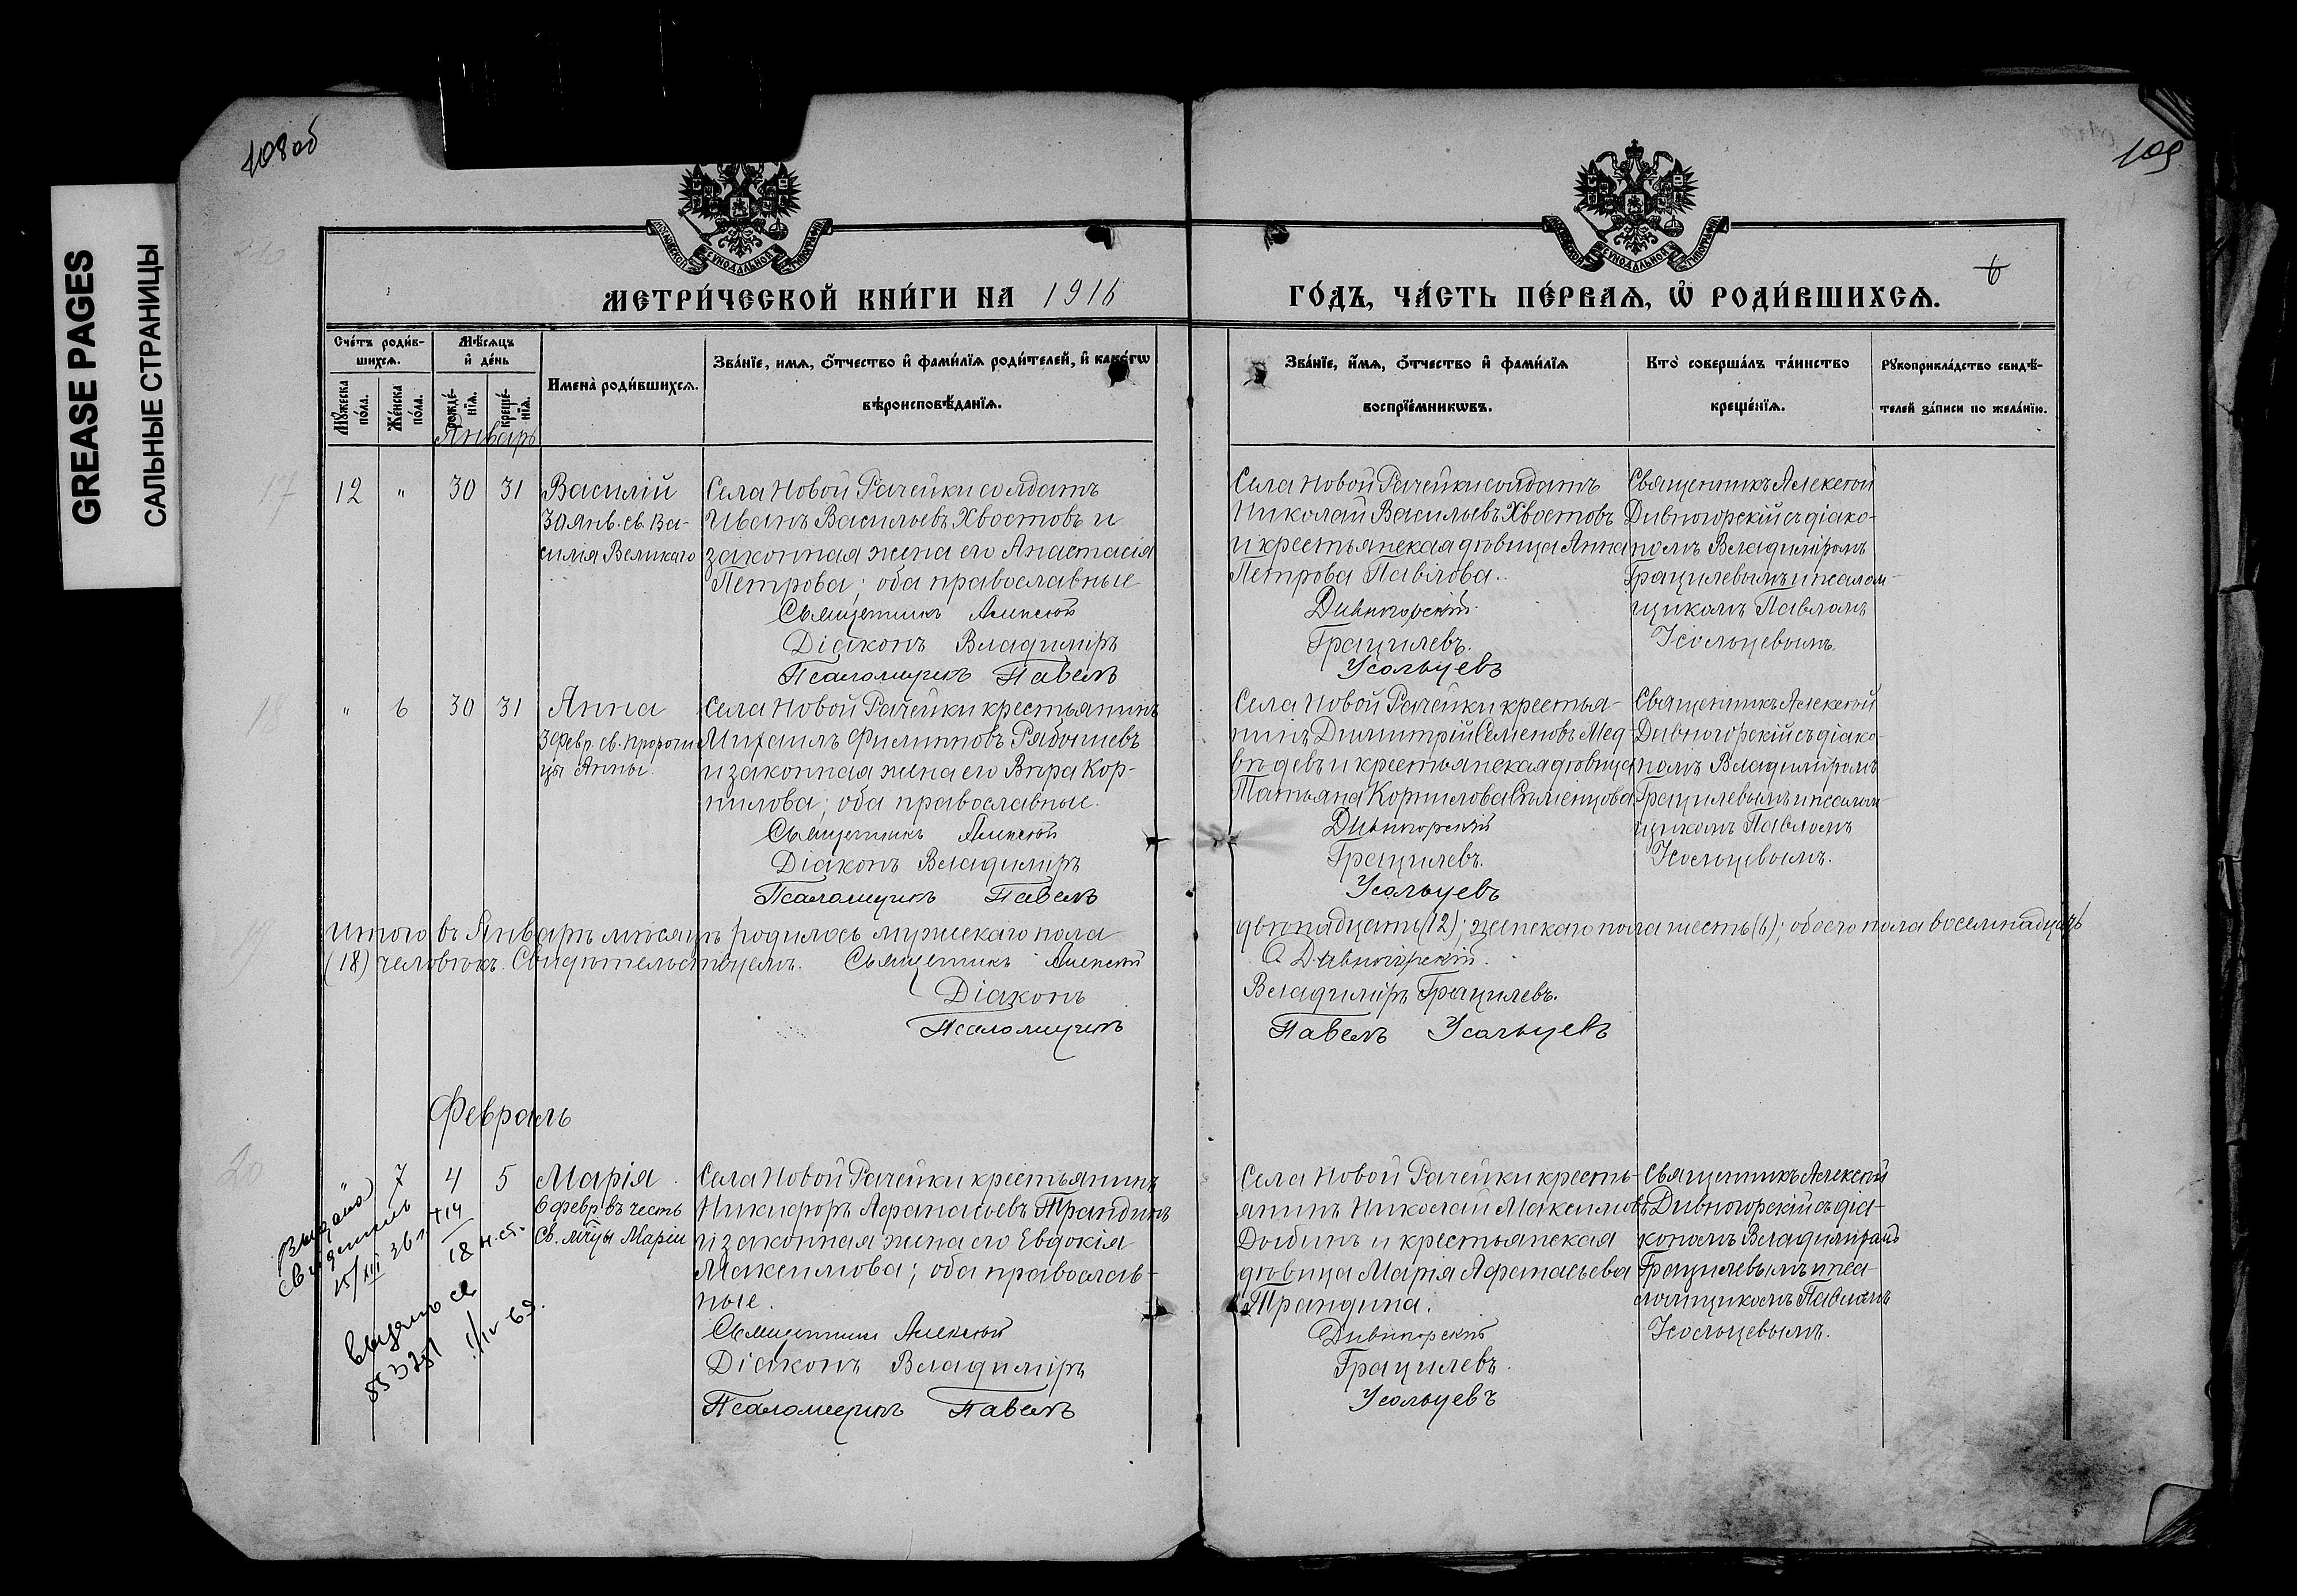 GREASE PAGES
САЛЬНЫЕ СТРАНИЦЫ
108об
109
МЕТРИ́ЧЕСКОЙ КНИ́ГИ НА 1916
ГО́ДЪ, ЧА́СТЬ ПЕ́РВАѦ, Ѡ҆ РОДИ́ВШИХСѦ.
6
Сче́тъ роди́в-
шихсѧ.
Мѣ́сѧцъ
и҆ де́нь
Мꙋ́жеска
по́ла.
Же́нска
по́ла.
рожде́-
нїѧ.
креще́-
нїѧ.
Имена̀ роди́вшихсѧ.
Зва́нїе, имѧ, ѻ҆́тчество и҆ фами́лїѧ роди́телей, и҆ како́гѡ
вѣроисповѣ́данїѧ.
Зва́нїе, и҆́мѧ, ѻ҆́тчество и҆ фами́лїѧ
воспрїе́мникѡвъ.
Кто̀ соверша́лъ та́инство
креще́нїѧ.
Рꙋкоприкла́дство свидѣ́-
телей за́писи по жела́нїю.
Январь
17
12 " 30 31
Василій
30 янв. св. Ва-
силія Великаго
Села Новой Рачейки солдатъ
Иванъ Васильевъ Хвостовъ и
законная жена его Анастасія
Петрова; оба православные
Священникъ Алексій
Діаконъ Владиміръ
Псаломщикъ Павелъ
Села Новой Рачейки солдатъ
Николай Васильевъ Хвостовъ
и крестьянская дѣвица Анна
Петрова Павлова.
Дивногорскій.
Грацилевъ.
Усольцевъ
Священникъ Алексій
Дивногорскій съ діако-
номъ Владиміромъ
Грацилевымъ и псалом-
щикомъ Павломъ
Усольцевымъ.
18
" 6 30 31
Анна
3 февр. св. пророчи
цы Анны.
Села Новой Рачейки крестьянинъ
Михаилъ Филипповъ Рябышевъ
и законная жена его Вѣра Кор-
нилова; оба православные.
Священникъ Алексій
Діаконъ Владиміръ
Псаломщикъ Павелъ
Села Новой Рачейки крестья-
нинъ Димитрій Семеновъ Мед-
вѣдевъ и крестьянская дѣвица
Татьяна Корнилова
Дивногорскій
Грацилевъ.
Усольцевъ
Священникъ Алексій
Дивногорскій съ діако-
номъ Владиміромъ
Грацилевымъ и псалом-
щикомъ Павломъ
Усольцевымъ.
19
Итого въ Январѣ мѣсяцѣ родилось мужскаго пола
двѣнадцать (12); женскаго пола шесть (6); обоего пола восемнадцать
(18) человѣкъ. Свидѣтельствуемъ. Священникъ Алексій
А Дивногорскій.
Діаконъ
Владиміръ Грацилевъ.
Псаломщикъ
Павелъ Усольцевъ
Февраль
20
7 4 5
Марія.
6 февр. въ честь
Св. мцы Маріи
Села Новой Рачейки крестьянинъ
Никифоръ Афанасьевъ Трандинъ
и законная жена его Евдокія
Максимова; оба православ-
ные.
Священникъ Алексій
Діаконъ Владиміръ
Псаломщикъ Павелъ
Села Новой Рачейки кресть-
янинъ Николай Максимовъ
Долбинъ и крестьянская
дѣвица Марія Афанасьева
Трандина.
Дивногорскій
Грацилевъ.
Усольцевъ
Священникъ Алексій
Дивногорскій съ діа-
кономъ Владиміромъ
Грацилевымъ и пса-
ломщикомъ Павломъ
Усольцевымъ.
Выдано
15/XII 36 г.
18 н.ст.
выдано св
1/IV-69.